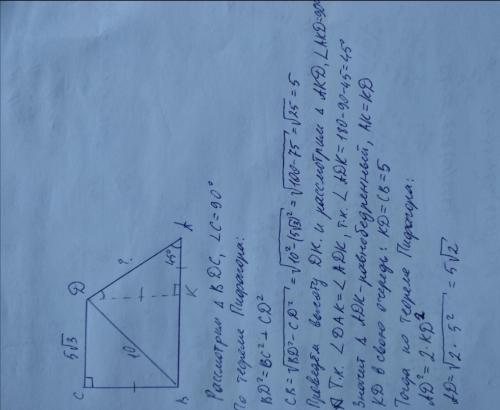 C
5√3
D
?
10
45°
B
K
A
Рассмотрим Δ BDC, ∠C=90°
По теореме Пифагора:
BD²=BC²+CD²
CB=√BD²-CD² = √10²-(5√3)² = √100-75 = √25 = 5
Проведём высоту DK. и рассмотрим Δ AKD, ∠AKD=90°
Δ Т.к. ∠DAK=∠ADK, т.к. ∠ADK=180-90-45=45°
Значит Δ ADK-равнобедренный, AK=KD
KD в свою очередь: KD=CB=5
Тогда по теореме Пифагора:
AD²=2·KD²
AD=√2·5² = 5√2